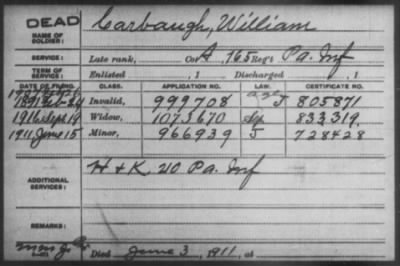 DEAD Carbaugh, William
NAME OF SOLDIER:
SERVICE: Late rank, Co. A, 165 Reg't Pa. Inf
TERM OF SERVICE: Enlisted , 1 Discharged , 1
DATE OF FILING. CLASS. APPLICATION NO. LAW. CERTIFICATE NO.
1891 Feb 24 Invalid, 999708 J 805871
1916 Sept 19 Widow, 1073670 833319
1911 June 15 Minor, 966939 J 728428
ADDITIONAL SERVICES: H + K. 20 Pa. Inf
REMARKS:
Died June 3, 1911, at